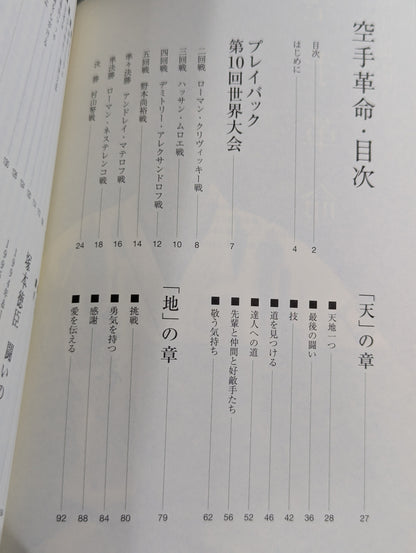 空手革命・目次
目次 2
はじめに 4
プレイバック
第10回世界大会 7
二回戦 ローマン・クリヴィッキー戦 8
三回戦 ハッサン・ムロエ戦 10
四回戦 デミトリー・アレクサンドロフ戦 12
五回戦 野本尚裕戦 14
準々決勝 アンドレイ・マテロフ戦 16
準決勝 ローマン・ネステレンコ戦 18
決勝 村山琴戦 24
「天」の章 27
■天地一つ 28
■最後の闘い 36
■技 42
■道を見つける 46
■達人への道 52
■先輩と仲間と好敵手たち 56
■敬う気持ち 62
「地」の章 79
■挑戦 80
■勇気を持つ 84
■感謝 88
■愛を伝える 92
塚本徳臣 闘いの